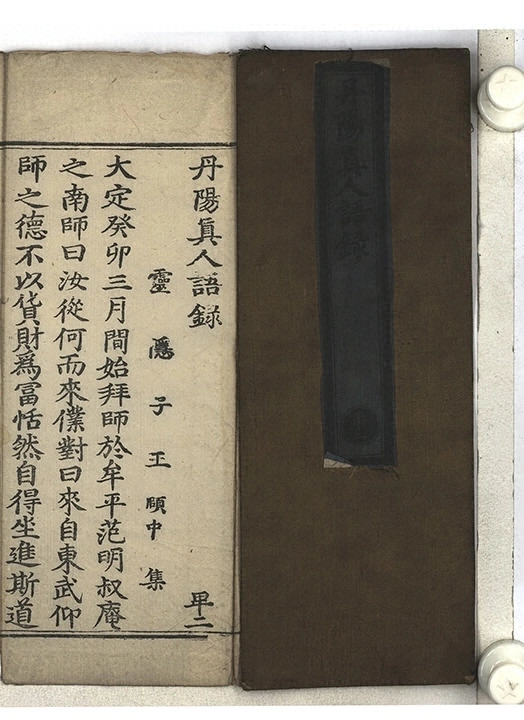 丹陽真人語錄
丹陽眞人語錄 卑二
靈隱子王頤中集
大定癸卯三月間始拜師於牟平范明叔庵
之南師曰汝從何而來僕對曰來自東武仰
師之德不以貨財爲富恬然自得坐進斯道